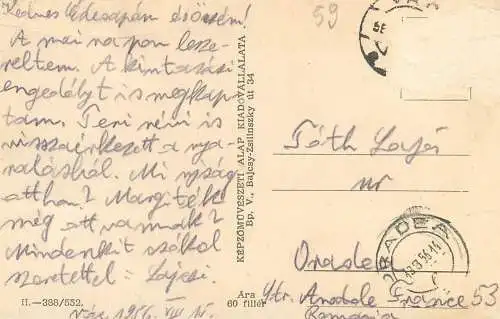 Kedves Édesapám és Öcsém!
A mai napon lesze-
reltem. A kiutazási
engedélyt is megkap-
tam. Teri néni is
visszaérkezett a nya-
ralásból. Mi ujság
otthon? Margiték
még ott vannak?
Mindenkit sokszor
szeretettel: Lajcsi.
II.—388/552.
1956. VIII
KÉPZŐMŰVÉSZETI ALAP KIADÓVÁLLALATA
Bp. V., Bajcsy-Zsilinszky út 34
Ára
60 fillér
59
Tóth Lajos
ur
ORADEA
Oradea
Str. Anatole France 53
Romania